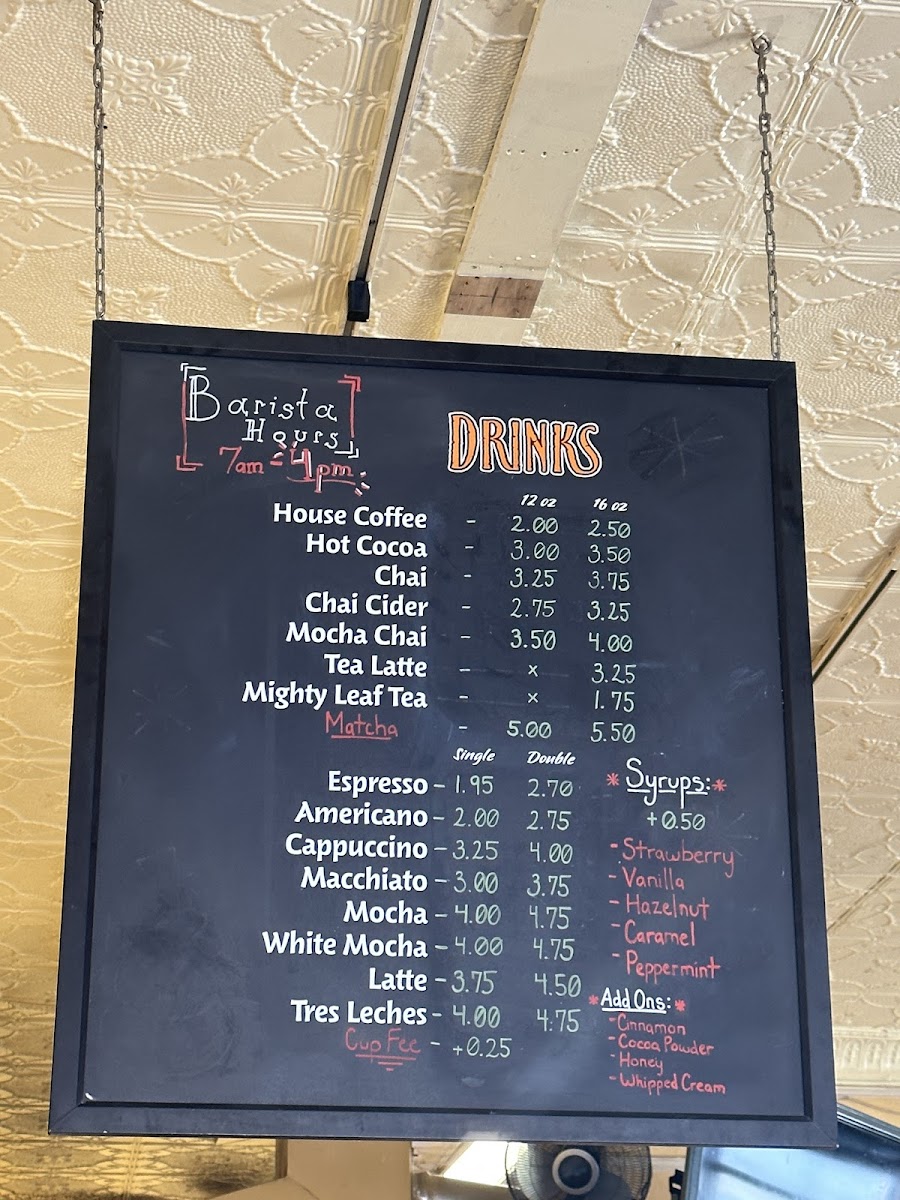 Barista
Hours
7am - 4pm
DRINKS
12 oz 16 oz
House Coffee - 2.00 2.50
Hot Cocoa - 3.00 3.50
Chai - 3.25 3.75
Chai Cider - 2.75 3.25
Mocha Chai - 3.50 4.00
Tea Latte - x 3.25
Mighty Leaf Tea - x 1.75
Matcha - 5.00 5.50
Single Double
Espresso - 1.95 2.70
Americano - 2.00 2.75
Cappuccino - 3.25 4.00
Macchiato - 3.00 3.75
Mocha - 4.00 4.75
White Mocha - 4.00 4.75
Latte - 3.75 4.50
Tres Leches - 4.00 4.75
Cup Fee - +0.25
* Syrups: *
+0.50
- Strawberry
- Vanilla
- Hazelnut
- Caramel
- Peppermint
* Add Ons: *
- Cinnamon
- Cocoa Powder
- Honey
- Whipped Cream